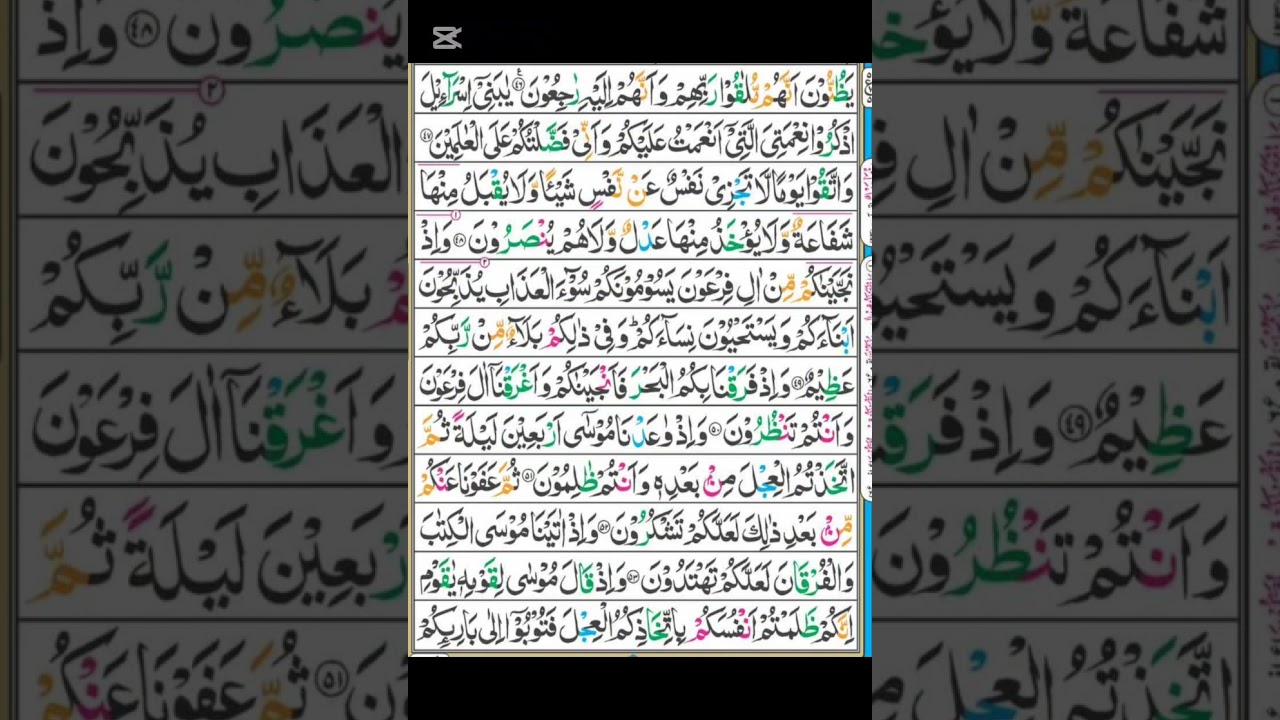 يَظُنُّوۡنَ اَنَّهُمۡ مُّلٰقُوۡا رَبِّهِمۡ وَاَنَّهُمۡ اِلَيۡهِ رٰجِعُوۡنَ ۝٤٦ يٰبَنِىۡٓ اِسۡرَآءِيۡلَ
اذۡكُرُوۡا نِعۡمَتِىَ الَّتِىۡٓ اَنۡعَمۡتُ عَلَيۡكُمۡ وَاَنِّىۡ فَضَّلۡتُكُمۡ عَلَى الۡعٰلَمِيۡنَ ۝٤٧
وَاتَّقُوۡا يَوۡمًا لَّا تَجۡزِىۡ نَفۡسٌ عَنۡ نَّفۡسٍ شَيۡــًٔا وَّلَا يُقۡبَلُ مِنۡهَا
شَفَاعَةٌ وَّلَا يُؤۡخَذُ مِنۡهَا عَدۡلٌ وَّلَا هُمۡ يُنۡصَرُوۡنَ ۝٤٨ وَاِذۡ
نَجَّيۡنٰکُمۡ مِّنۡ اٰلِ فِرۡعَوۡنَ يَسُوۡمُوۡنَكُمۡ سُوۡٓءَ الۡعَذَابِ يُذَبِّحُوۡنَ
اَبۡنَآءَكُمۡ وَيَسۡتَحۡيُوۡنَ نِسَآءَكُمۡ‌ؕ وَفِىۡ ذٰلِكُمۡ بَلَاۤءٌ مِّنۡ رَّبِّكُمۡ
عَظِيۡمٌ ۝٤٩ وَاِذۡ فَرَقۡنَا بِكُمُ الۡبَحۡرَ فَاَنۡجَيۡنٰکُمۡ وَاَغۡرَقۡنَآ اٰلَ فِرۡعَوۡنَ
وَاَنۡتُمۡ تَنۡظُرُوۡنَ ۝٥٠ وَاِذۡ وٰعَدۡنَا مُوۡسٰٓى اَرۡبَعِيۡنَ لَيۡلَةً ثُمَّ
اتَّخَذۡتُمُ الۡعِجۡلَ مِنۡۢ بَعۡدِهٖ وَاَنۡتُمۡ ظٰلِمُوۡنَ ۝٥١ ثُمَّ عَفَوۡنَا عَنۡكُمۡ
مِّنۡۢ بَعۡدِ ذٰلِكَ لَعَلَّكُمۡ تَشۡكُرُوۡنَ ۝٥٢ وَاِذۡ اٰتَيۡنَا مُوۡسَى الۡكِتٰبَ
وَالۡفُرۡقَانَ لَعَلَّكُمۡ تَهۡتَدُوۡنَ ۝٥٣ وَاِذۡ قَالَ مُوۡسٰى لِقَوۡمِهٖ يٰقَوۡمِ
اِنَّكُمۡ ظَلَمۡتُمۡ اَنۡفُسَکُمۡ بِاتِّخَاذِكُمُ الۡعِجۡلَ فَتُوۡبُوۡٓا اِلٰى بَارِٮِٕكُمۡ